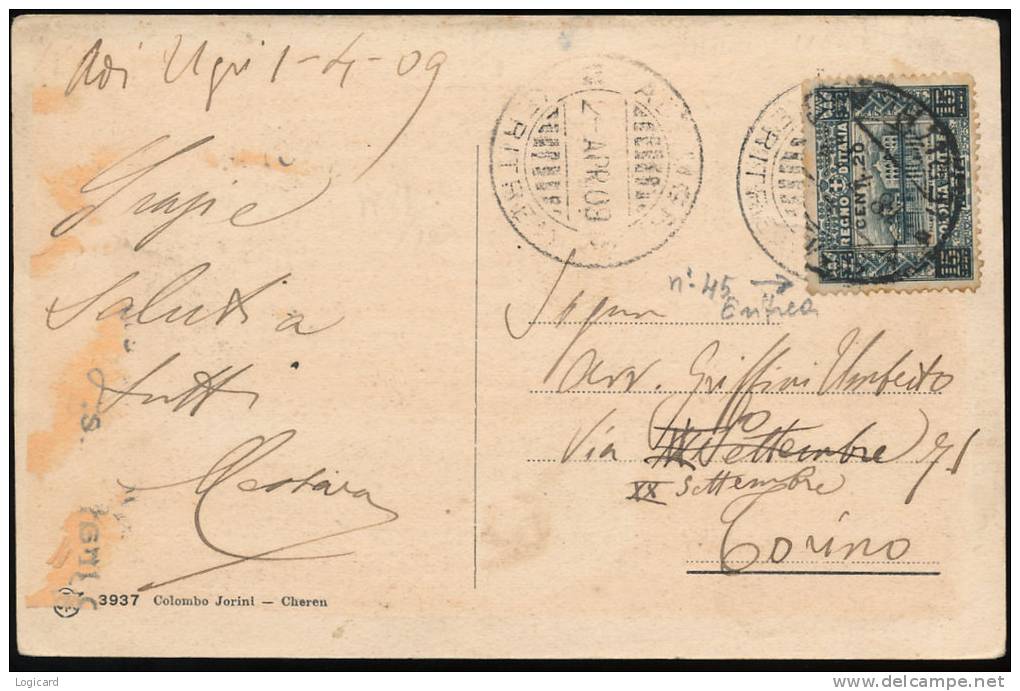 Adi Ugri 1-4-09
Grazie
Saluti a
tutti
3937 Colombo Jorini — Cheren
2-APR.09
ERITREA
REGNO D'ITALIA
CENT. 20
COLONIA ERITREA
15 15
n° 45 →
Eritrea
Signor
Avv. Griffini Umberto
Via Settembre 71
XX Settembre
Torino
Logicard
delcampe.net